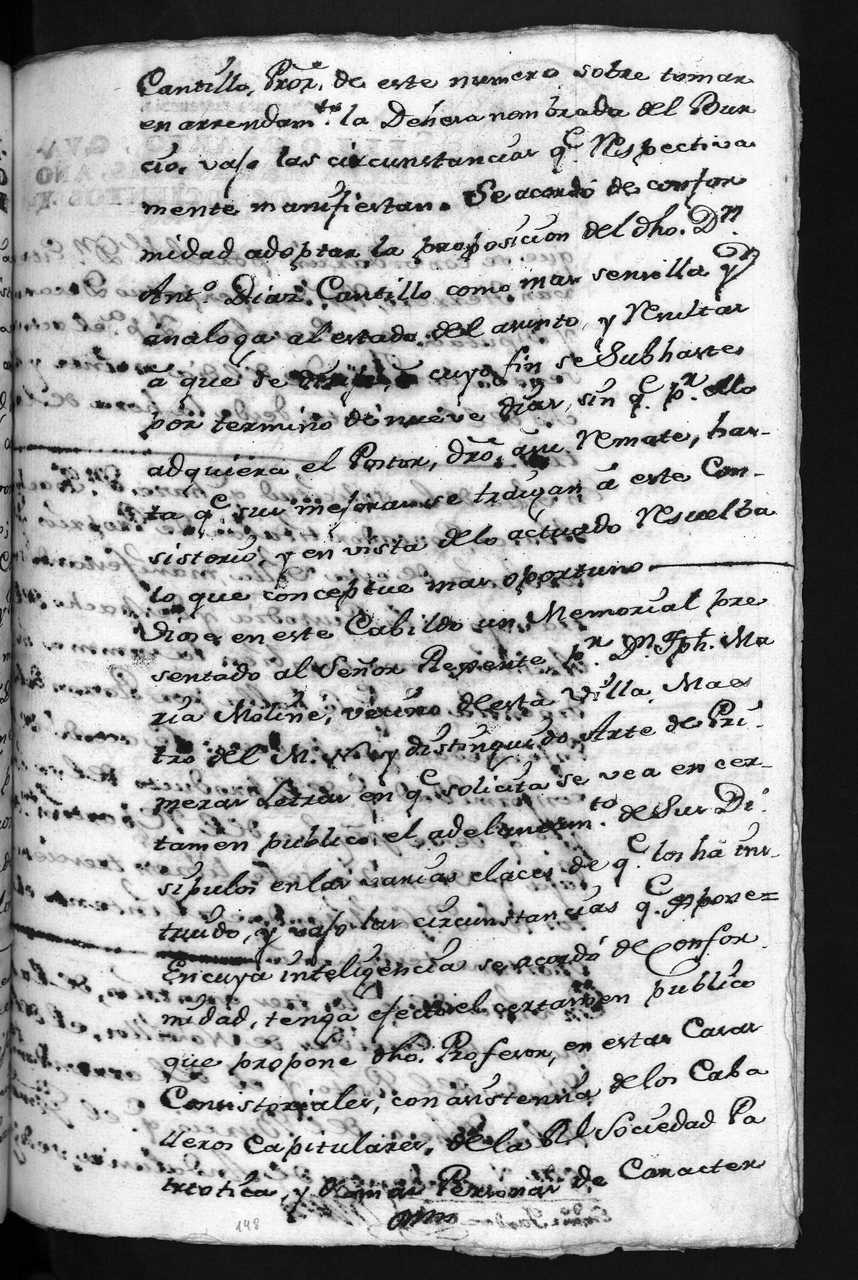 Cantillo, Pror. de este numero sobre tomar
en arrendamto. la Dehesa nombrada del Bur
cio, vajo las circunstancias qe. Respectiva
mente manifiestan. Se acordó de confor
midad adoptar la proposicion del dho. Dn.
Anto. Diaz Cantillo como mas sensilla y
análoga al estado del asunto, y Resultas
a que se cuyo fin se Subhaste
por termino de nueve dias, sin qe. pr. ello
adquiera el Postor, dro. á su Remate, has-
ta qe. sus mejoras se traigan á este Con-
sistorio, y en vista de lo actuado Resuelba
lo que conceptue mas oportuno
Diose en este Cabildo un Memorial pre
sentado al Señor Regente, pr. Dn. Jph. Ma
ria Moliné, vecino de esta Villa, Maes
tro del M. N. y distinguido Arte de Pri-
meras Letras en qe. solicita se vea en cer-
tamen publico el adelantamto. de sus Di-
sipulos en las varias claces de qe. los há ins-
truido, y vajo las circunstancias qe. expone=
En cuya inteligencia se acordó de confor
midad, tenga efecto el certamen publico
que propone dho. Profesor, en estas Casas
Consistoriales, con asistencia de los Caba
lleros Capitulares, de la Rl. Sociedad Pa
triotica, y demas Personas de Caracter
148